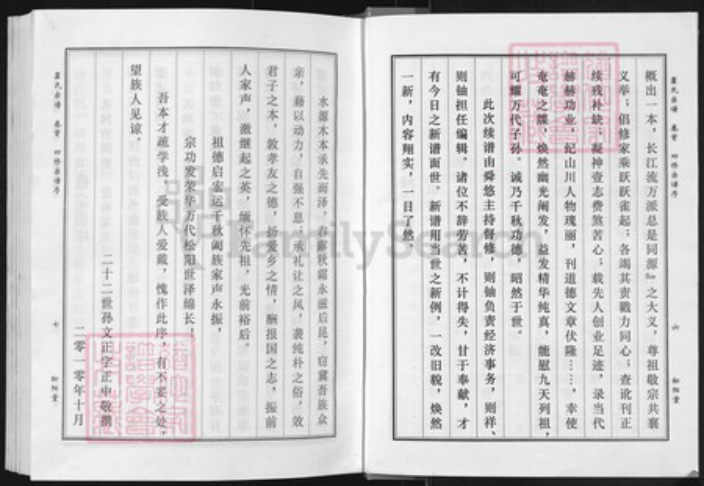 概出一本，长江流万派总是同源』之大义，尊祖敬宗共襄
义举；倡修家乘跃跃雀起；各竭其责戮力同心；查讹刊正
续残补缺；凝神查志费煞苦心；载先人创业足迹，录当代
赫赫功业，纪山川人物瑰丽，刊道德文章伏隆……，幸使
奄奄之牒，焕然幽光阐发，益发精华纯真，能慰九天列祖，
可耀万代子孙。诚乃千秋功德，昭然于世。
此次续谱由舜悠主持督修，则铀负责经济事务，则祥、
则铀担任编辑。诸位不辞劳苦，不计得失，甘于奉献，才
有今日之新谱面世。新谱用当世之新例，一改旧貌，焕然
一新，内容翔实，一目了然。
夏氏宗谱 卷首 四修宗谱序
六
松阳堂
夏氏宗谱 卷首 四修宗谱序
七
松阳堂
水源木本承先而泽，春露秋霜永滋后昆，窃冀吾族众
亲，藉以动力，自强不息；承礼让之风，袭纯朴之俗，效
君子之本，敦孝友之德，扬爱乡之情，酬报国之志，振前
人家声，激继起之英，缅怀先祖，光前裕后。
祖德启宏运千秋阖族家声永振，
宗功发荣华万代松阳世泽绵长。
吾本才疏学浅，受族人爱戴，愧作此序，有不妥之处，
望族人见谅。
二十二世孙文正字正中敬撰
二零一零年十月
FamilySearch